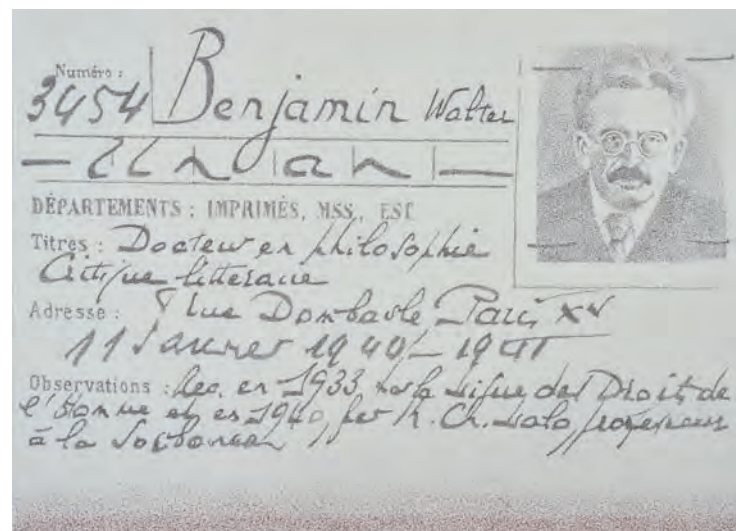 Numéro :
3454 Benjamin Walter
— un an —
DÉPARTEMENTS : IMPRIMÉS, MSS., EST
Titres : Docteur en philosophie
Critique litteraire
Adresse : rue Dombasle Paris XV
11 Janvier 1940 - 1941
Observations : Rec. en 1933 par la Ligue des Droits de
l'Homme et en 1940, par M. Ch. Lalo, professeur
à la Sorbonne